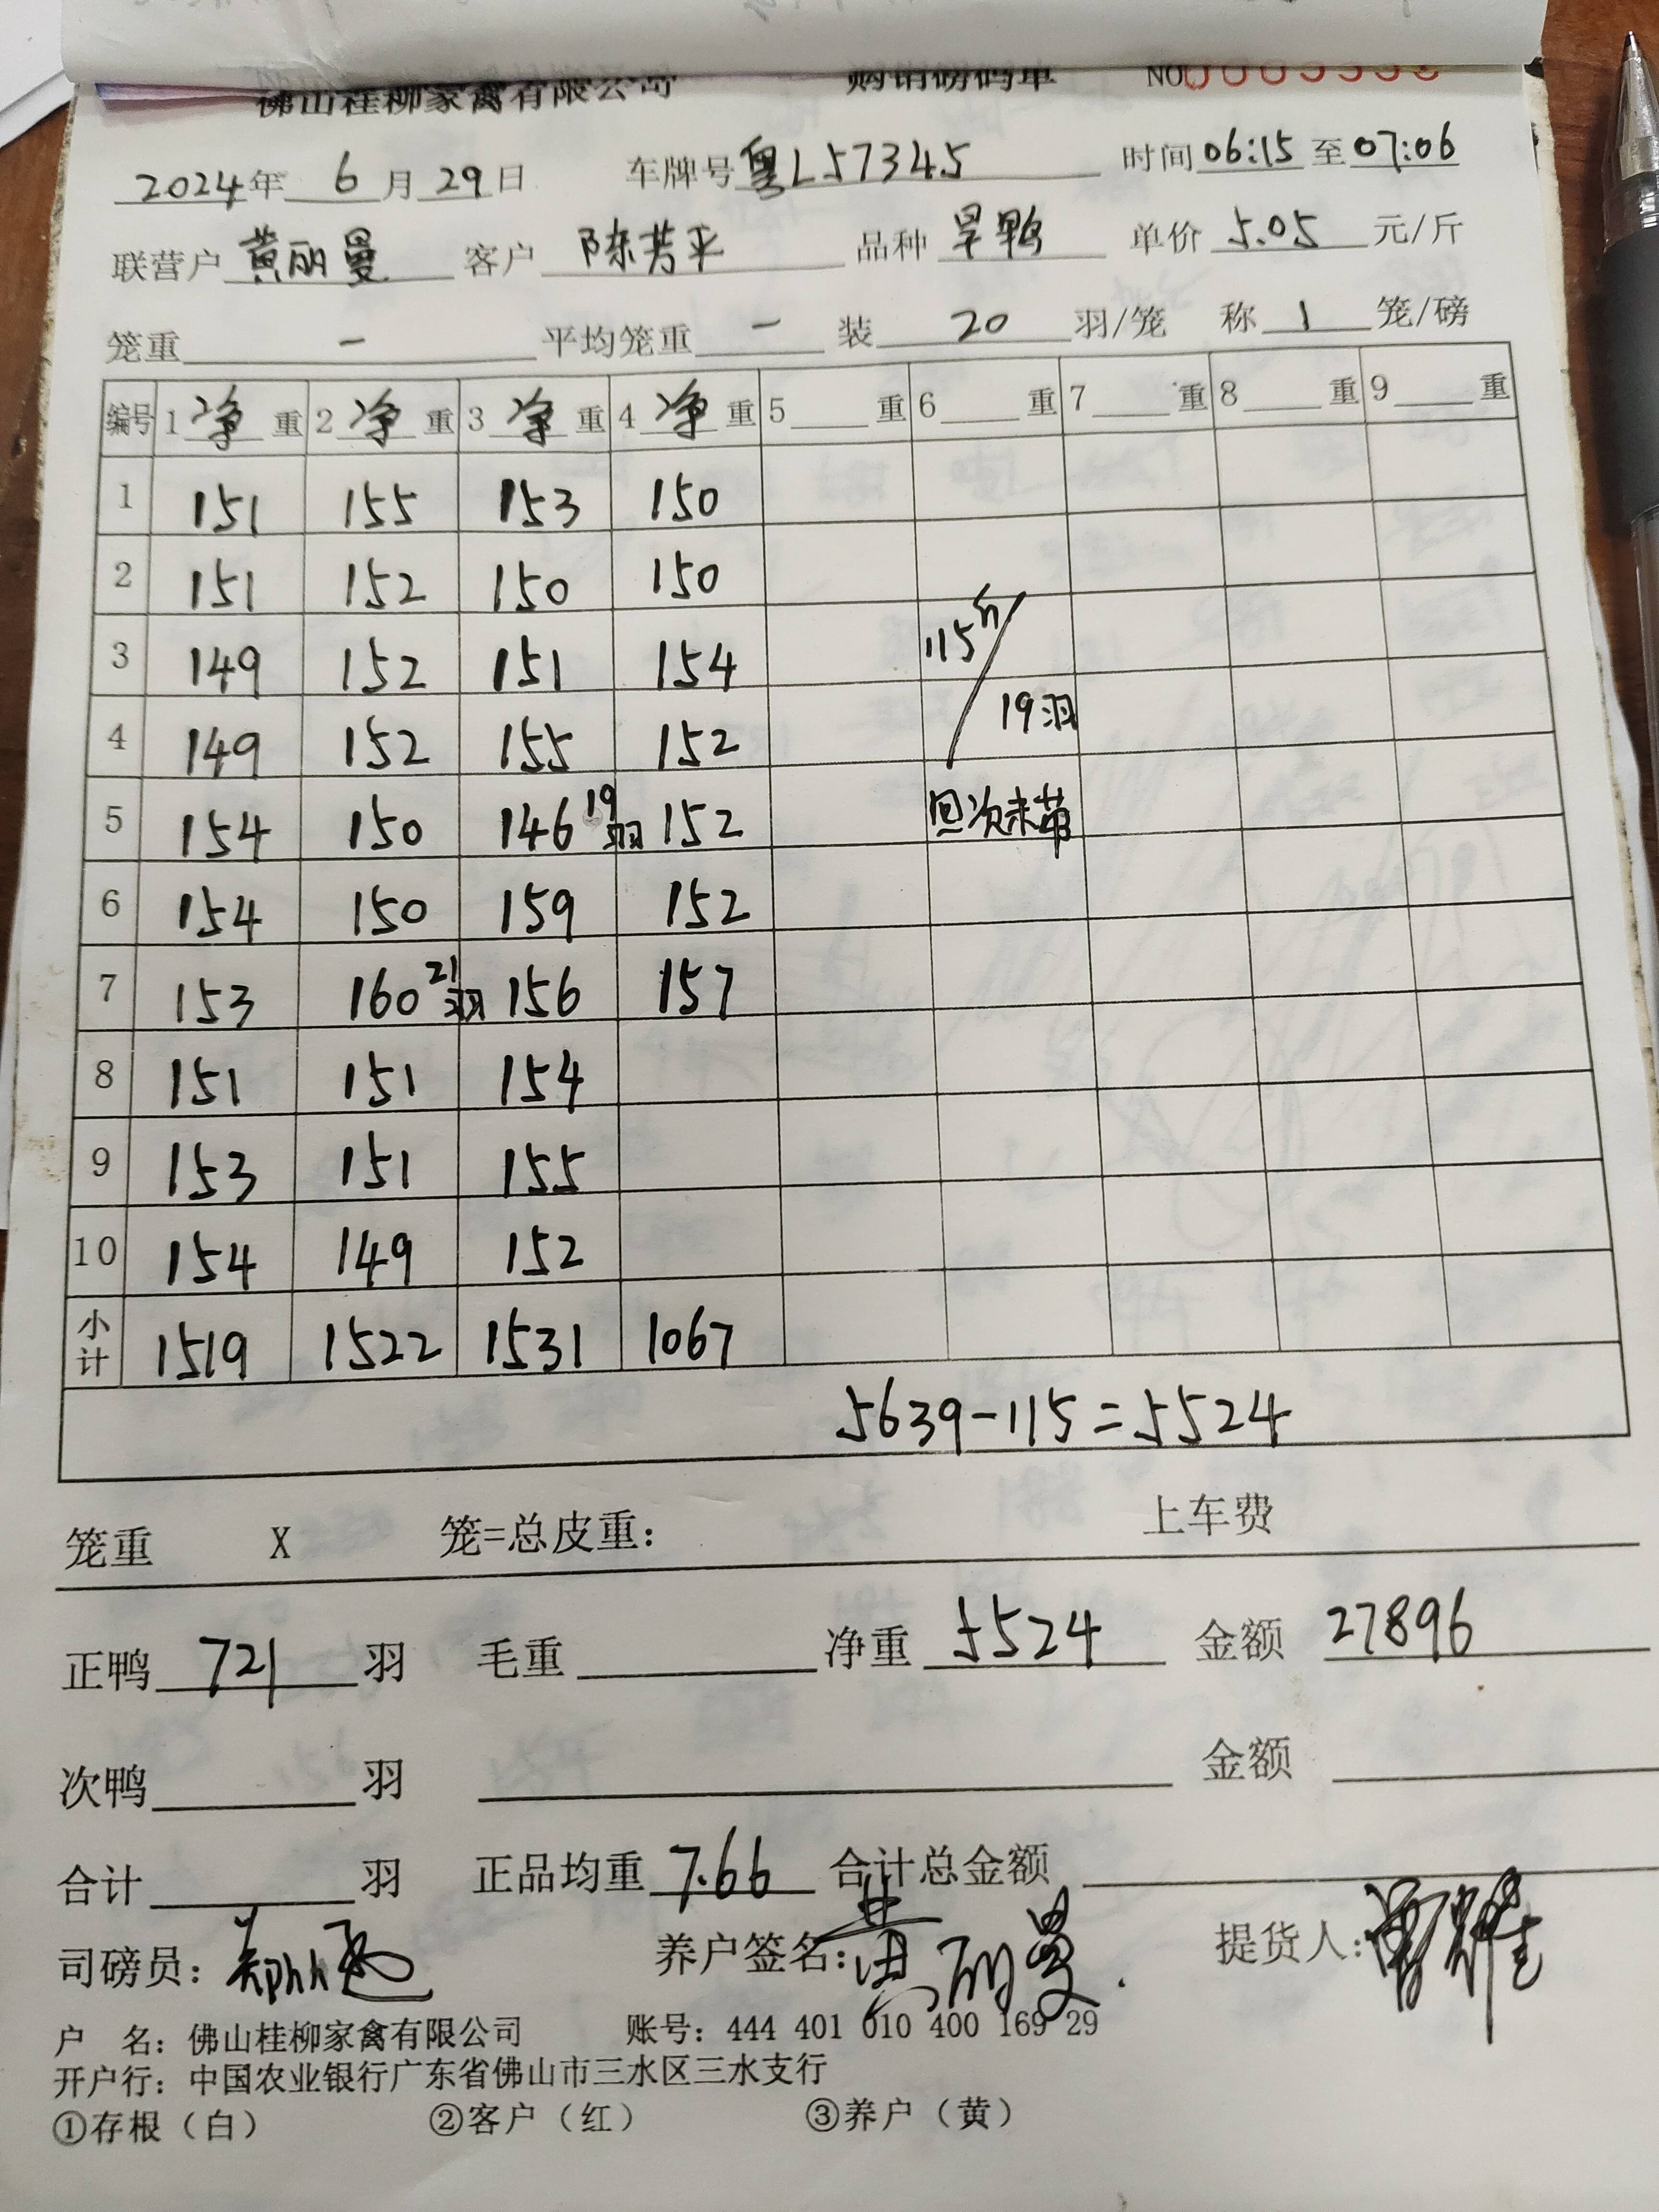 佛山桂柳家禽有限公司 购销磅码单 NO
2024年 6 月 29 日 车牌号 粤L57345 时间 06:15 至 07:06
联营户 黄丽曼 客户 陈芳平 品种 旱鸭 单价 5.05 元/斤
笼重 — 平均笼重 — 装 20 羽/笼 称 1 笼/磅
编号 1 净 重 2 净 重 3 净 重 4 净 重 5 重 6 重 7 重 8 重 9 重
1 151 155 153 150
2 151 152 150 150
3 149 152 151 154 115斤/
4 149 152 155 152 19羽
5 154 150 146 19羽 152 回次未苗
6 154 150 159 152
7 153 160 21羽 156 157
8 151 151 154
9 153 151 155
10 154 149 152
小计 1519 1522 1531 1067
5639-115=5524
笼重 X 笼=总皮重： 上车费
正鸭 721 羽 毛重 净重 5524 金额 27896
次鸭 羽 金额
合计 羽 正品均重 7.66 合计总金额
司磅员： 养户签名：黄丽曼. 提货人：
户 名：佛山桂柳家禽有限公司 账号：444 401 010 400 169 29
开户行：中国农业银行广东省佛山市三水区三水支行
①存根（白） ②客户（红） ③养户（黄）